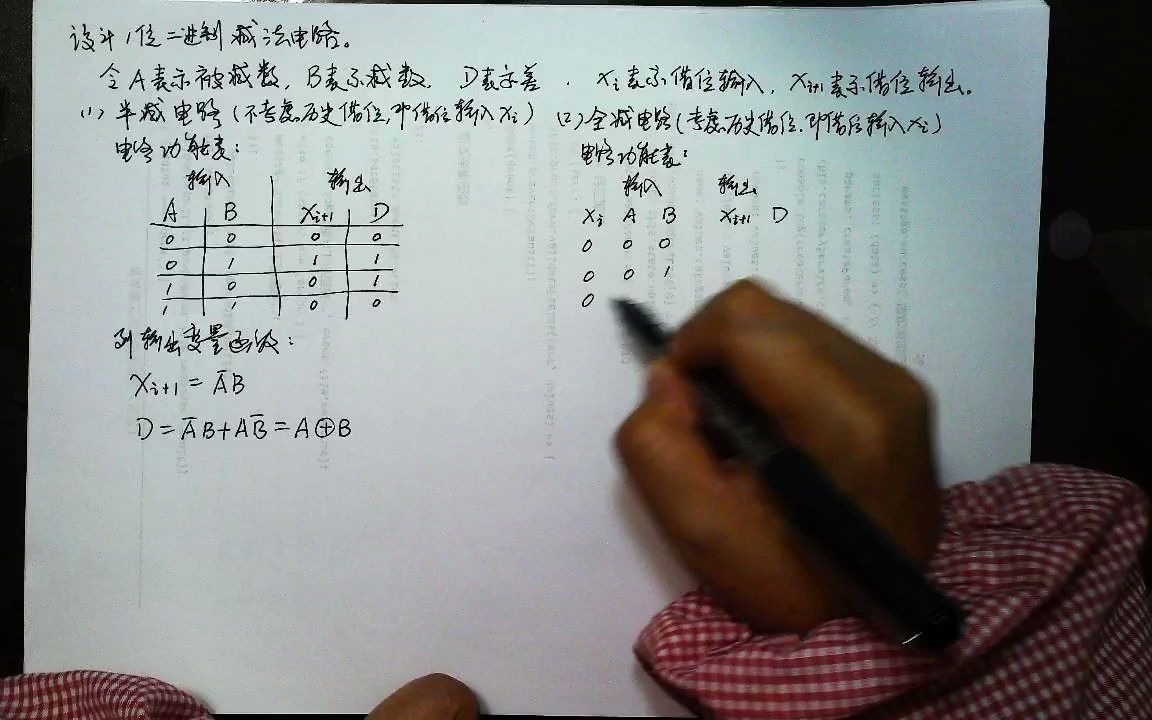 设计1位二进制减法电路。
令A表示被减数, B表示减数, D表示差, Xi表示借位输入, Xi+1表示借位输出。
(1) 半减电路(不考虑历史借位,即借位输入Xi)
电路功能表:
输入 输出
A B Xi+1 D
0 0 0 0
0 1 1 1
1 0 0 1
1 1 0 0
列输出变量函数:
Xi+1 = A̅B
D = A̅B + AB̅ = A⊕B
(2) 全减电路(考虑历史借位,即借位输入Xi)
电路功能表:
输入 输出
Xi A B Xi+1 D
0 0 0
0 0 1
0